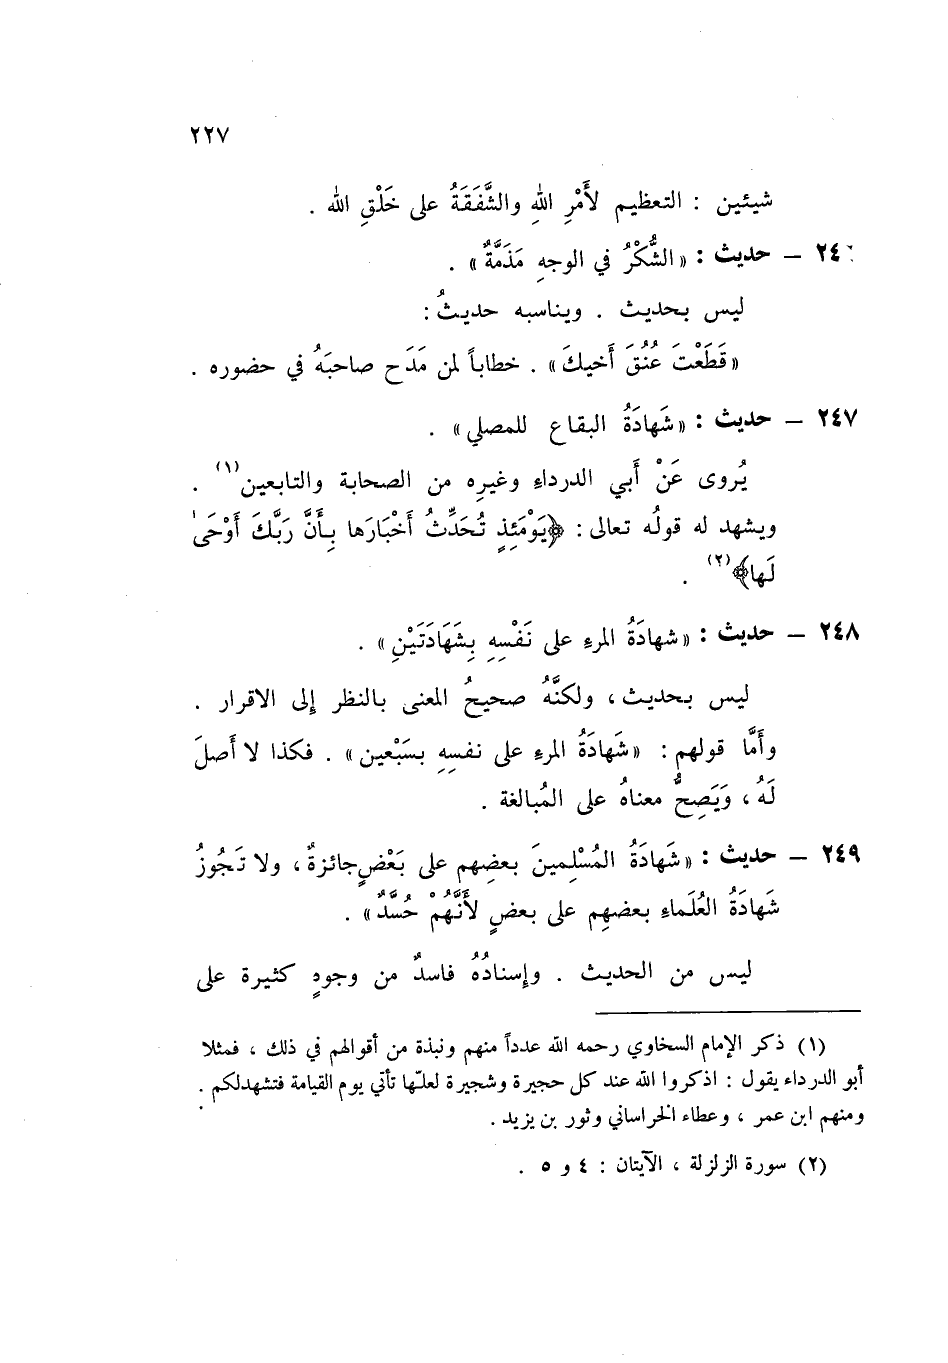 ٢٢٧
شيئين : التعظيم لأَمْرِ اللهِ والشَّفَقَةُ على خَلْقِ الله .
٢٤٦ – حديث : «الشُّكْرُ في الوجهِ مَذَمَّةٌ» .
ليس بحديث . ويناسبه حديثُ :
«قَطَعْتَ عُنُقَ أَخيكَ» . خطاباً لمن مَدَح صاحبَهُ في حضوره .
٢٤٧ – حديث : «شَهادَةُ البقاع للمصلي» .
يُروى عَنْ أَبي الدرداءِ وغيرِه من الصحابة والتابعين(١) .
ويشهد له قولُه تعالى : ﴿يَوْمَئِذٍ تُحَدِّثُ أَخْبَارَها بِأَنَّ رَبَّكَ أَوْحَىٰ
لَها﴾(٢) .
٢٤٨ – حديث : «شهادَةُ المرءِ على نَفْسِهِ بِشَهَادَتَيْنِ» .
ليس بحديث ، ولكنَّهُ صحيحُ المعنى بالنظر إلى الاقرار .
وأَمَّا قولهم : «شَهادَةُ المرءِ على نفسِهِ بسَبْعين» . فكذا لا أَصلَ
لَهُ ، وَيَصِحُّ معناهُ على المُبالغة .
٢٤٩ – حديث : «شَهادَةُ المُسْلِمينَ بعضِهم على بَعْضٍ جائزةٌ ، ولا تَجُوزُ
شَهادَةُ العُلَماءِ بعضهِم على بعضٍ لأَنَّهُمْ حُسَّدٌ» .
ليس من الحديث . وإسنادُهُ فاسدٌ من وجوهٍ كثيرة على
(١) ذكر الإمام السخاوي رحمه الله عدداً منهم ونبذة من أقوالهم في ذلك ، فمثلا
أبو الدرداء يقول : اذكروا الله عند كل حجيرة وشجيرة لعلّها تأتي يوم القيامة فتشهدلكم .
ومنهم ابن عمر ، وعطاء الخراساني وثور بن يزيد .
(٢) سورة الزلزلة ، الآيتان : ٤ و ٥ .